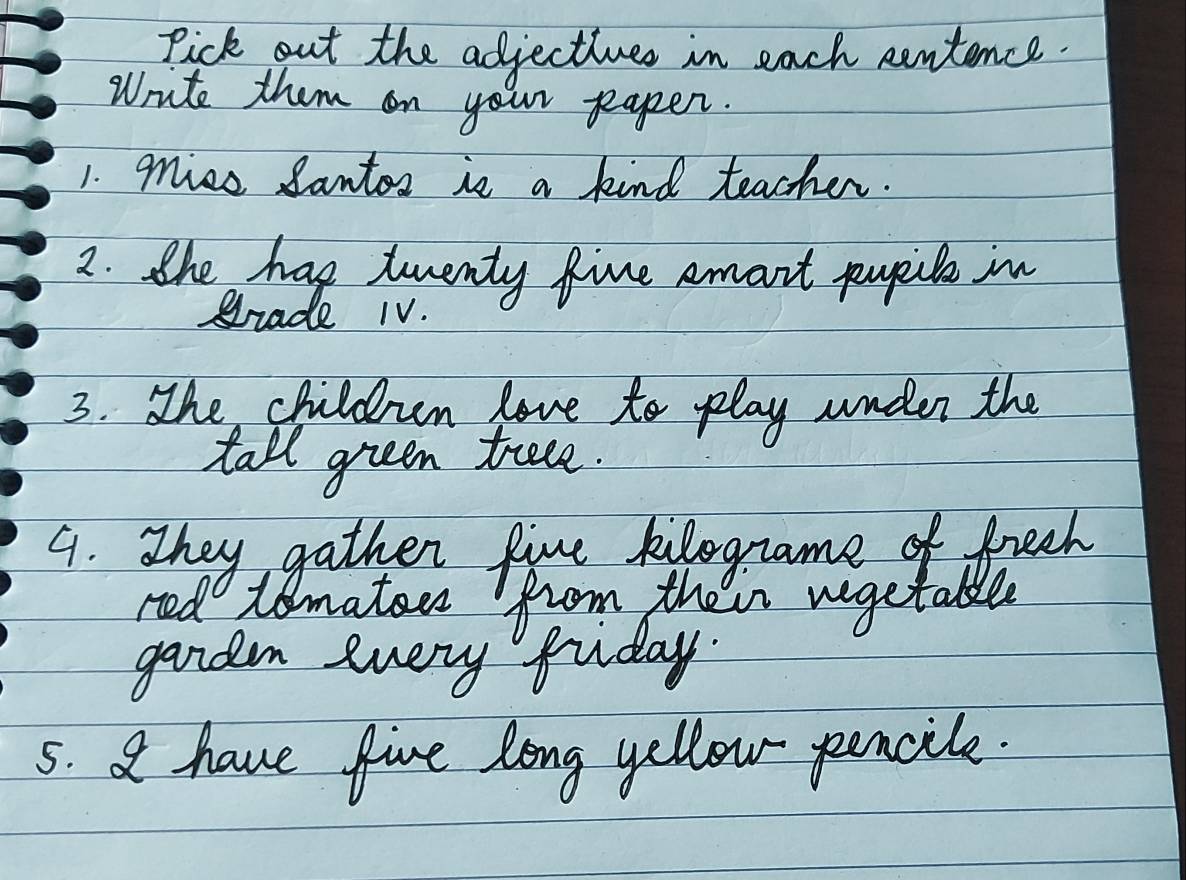 Pick out the adjectives in each sentence.
Write them on your paper.
1. Miss Santos is a kind teacher.
2. She has twenty five smart pupils in
Grade IV.
3. The children love to play under the
tall green trees.
4. They gather five kilograms of fresh
red tomatoes from their vegetable
garden every friday.
5. I have five long yellow pencils.